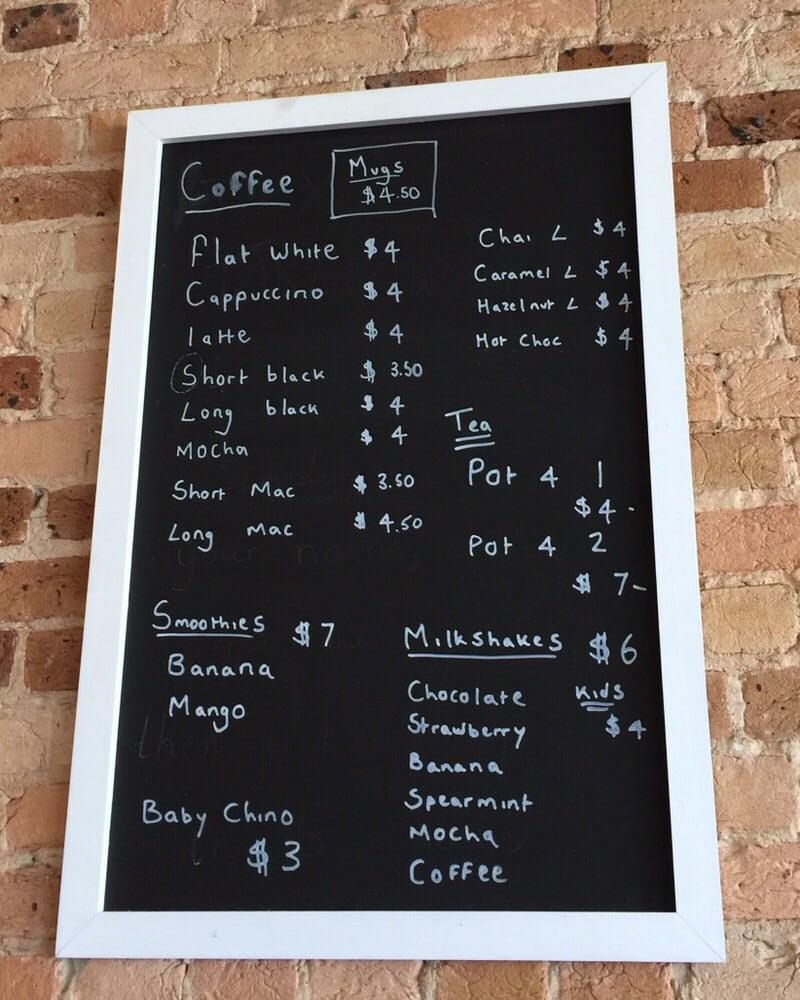 Coffee
Mugs
$4.50
Flat White $4
Cappuccino $4
latte $4
Short black $3.50
Long black $4
Mocha $4
Short Mac $3.50
Long Mac $4.50
Chai L $4
Caramel L $4
Hazelnut L $4
Hot Choc $4
Tea
Pot 4 1
$4-
Pot 4 2
$7-
Smoothies $7
Banana
Mango
Baby Chino
$3
Milkshakes $6
Chocolate Kids
Strawberry $4
Banana
Spearmint
Mocha
Coffee